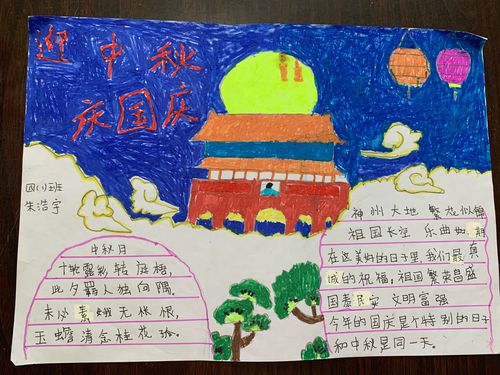 迎中秋
庆国庆
四(1)班
朱浩宇
中秋月
十轮霜影转庭梧,
此夕羁人独向隅。
未必素娥无怅恨,
玉蟾清冷桂花孤。
神州大地 繁花似锦
祖国长空 乐曲如潮
在这美好的日子里,我们最真
诚的祝福,祖国繁荣昌盛
国泰民安 文明富强
今年的国庆是个特别的日子
和中秋是同一天。